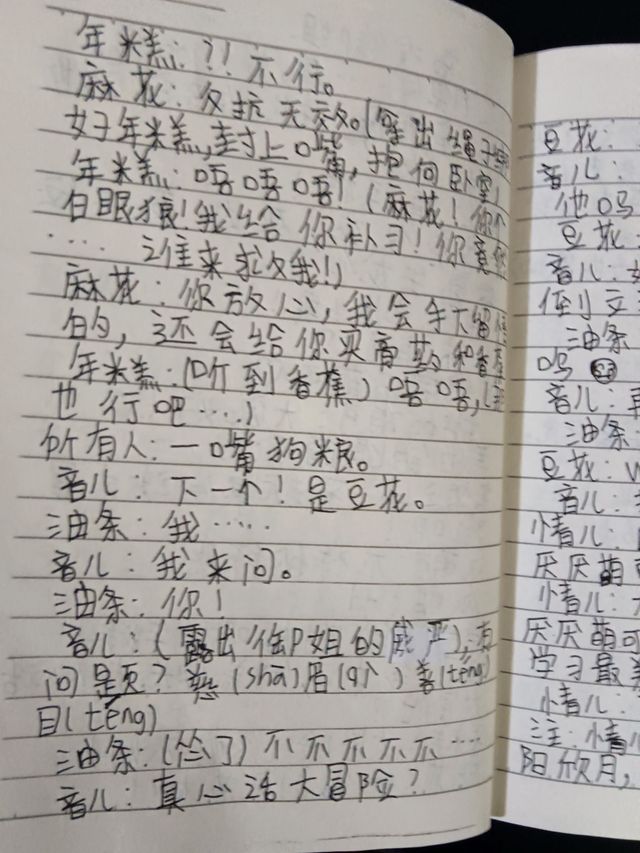 年米糕:?!不行。
麻花:反抗无效。(掌出绳子
好年米糕,封上口嘴,抱向卧室)
年米糕:唔唔唔!(麻花!你个
白眼狼!我给你补习!你竟
····谁来救我!)
麻花:你放心,我会手大留
的,还会给你买高其月和香蕉
年米糕:(听到香蕉)唔唔,(
也行吧····)
所有人:一口嘴狗粮。
音儿:下一个!是豆花。
油条:我·····
音儿:我来问。
油条:你!
音儿:(露出 姐的威严),有
问是页?煞(shā)眉(qǐ)善(téng)
目(téng)
油条:(怂了)不不不不不····
音儿:真心话大冒险?
豆花:
音儿:
他吗
豆花:
音儿:
倒立
油条
吗
音儿:再
油条:
豆花:W
音儿:
情儿:
厌厌萌
情儿:
厌厌萌可
学习最
情儿:
注:情儿
阳欣月,